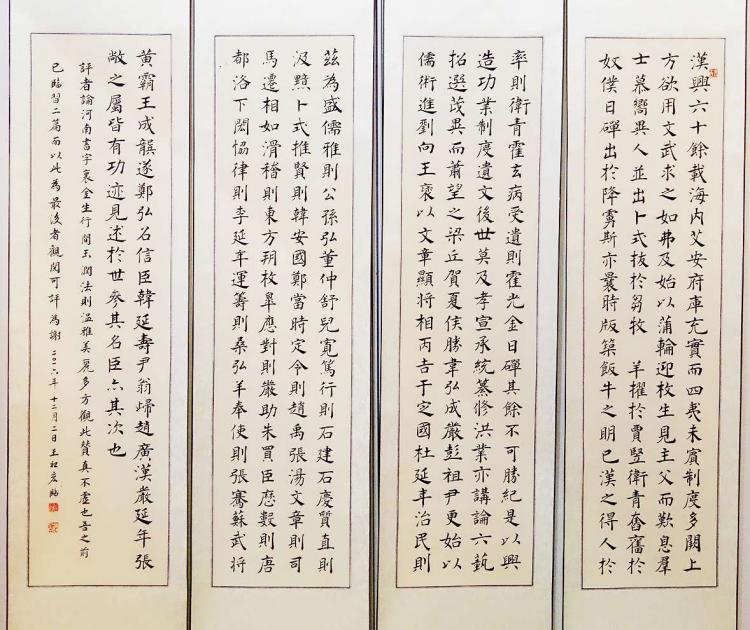 漢興六十餘載海內艾安府庫充實而四夷未賓制度多闕上
方欲用文武求之如弗及始以蒲輪迎枚生見主父而歎息羣
士慕嚮異人並出卜式拔於芻牧 羊擢於賈豎衛青奮舊於
奴僕日磾出於降虜斯亦曩時版築飯牛之明已漢之得人於
率則衛青霍去病受遺則霍光金日磾其餘不可勝紀是以興
造功業制度遺文後世莫及孝宣承統纂修洪業亦講論六藝
招選茂異而蕭望之梁丘賀夏侯勝韋弘成嚴彭祖尹更始以
儒術進劉向王褒以文章顯將相丙吉于定國杜延年治民則
茲為盛儒雅則公孫弘董仲舒兒寬篤行則石建石慶質直則
汲黯卜式推賢則韓安國鄭當時定令則趙禹張湯文章則司
馬遷相如滑稽則東方朔枚皋應對則嚴助朱買臣歷數則唐
都洛下閎協律則李延年運籌則桑弘羊奉使則張騫蘇武將
黃霸王成龔遂鄭弘召信臣韓延壽尹翁歸趙廣漢嚴延年張
敞之屬皆有功迹見述於世參其名臣亦其次也
評者論河南書字裏金生行間玉潤法則溫雅美麗多方觀此贊真不虛也吾之前
已臨習二篇而以此為最後者觀閱可評 為謝 二〇一六年十二月二日 王 宏 臨